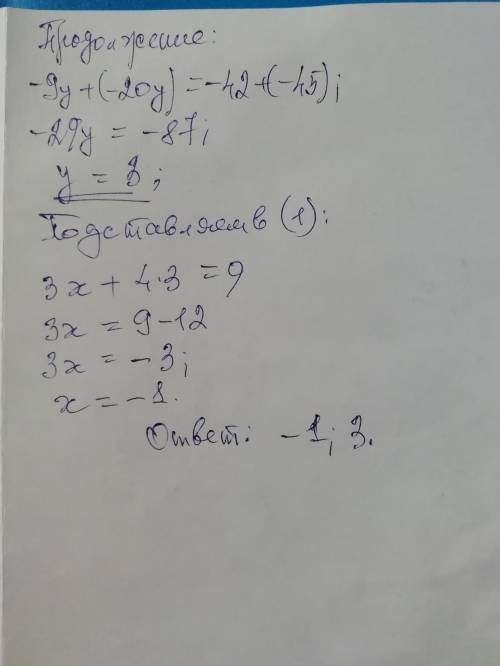 Продолжение:
-9y+(-20y)=-42+(-45);
-29y = -87;
y = 3;
Подставляем в (1):
3x + 4·3 = 9
3x = 9-12
3x = -3;
x = -1.
Ответ: -1; 3.